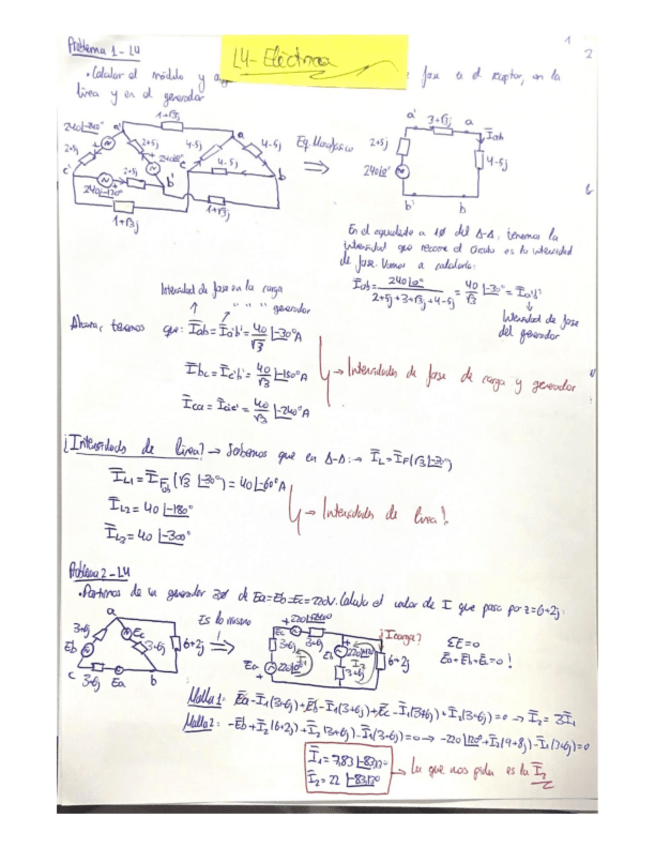 Problema 1 - L4
L4- Eléctrica
1
2
• Calcular el módulo y fase en el receptor, en la
línea y en el generador
1+√3j
a'
a
240
2+5j
2+5j
4-5j
4-5j
c'
c
4-5j
b
b'
2+5j
240|-120°
1+√3j
1+√3j
Eq. Monofásico
⇒
a'
3+√3j
a
Iab
2+5j
4-5j
240|0°
b'
b
En el equivalente a 1Ø del Δ-Δ, tenemos la
intensidad que recorre el circuito es la intensidad
de fase. Vamos a calcularla:
Iab = 240|0° / 2+5j+3+√3j+4-5j = 40/√3 |-30° = Ia'b'
Intensidad de fase
del generador
Intensidad de fase en la carga
" " " generador
Ahora, tenemos que: Iab = Ia'b' = 40/√3 |-30° A
Ibc = Ic'b' = 40/√3 |-150° A
Ica = 40/√3 |-240° A
→ Intensidades de fase de carga y generador
¿Intensidades de línea? → Sabemos que en Δ-Δ: → IL = IF(√3|-30°)
IL1 = IFab (√3 |-30°) = 40|-60° A
IL2 = 40 |-180°
IL3 = 40 |-300°
→ Intensidades de línea!
Problema 2 - L4
• Partimos de un generador 3Ø de Ea=Eb=Ec=220V. Calcula el valor de I que pasa por z=6+2j:
a
3+6j
Ec
Eb
6+2j
c
3+6j
Ea
b
Es lo mismo
⇒
Ec
3+6j
3+6j
Ea
220|0°
I1
Eb
3+6j
I2
¿Icarga?
6+2j
ΣE=0
Ea+Eb+Ec=0!
Malla 1: Ea-I1(3+6j)+Eb-I1(3+6j)+Ec-I1(3+6j)+I2(3+6j)=0 → I2 = 3I1
Malla 2: -Eb+I2(6+2j)+I2(3+6j)-I1(3+6j)=0 → -220|120°+I2(9+8j)-I1(3+6j)=0
I1 = 7,33|-83,130
I2 = 22 |-83,130
→ La que nos pida es la I2